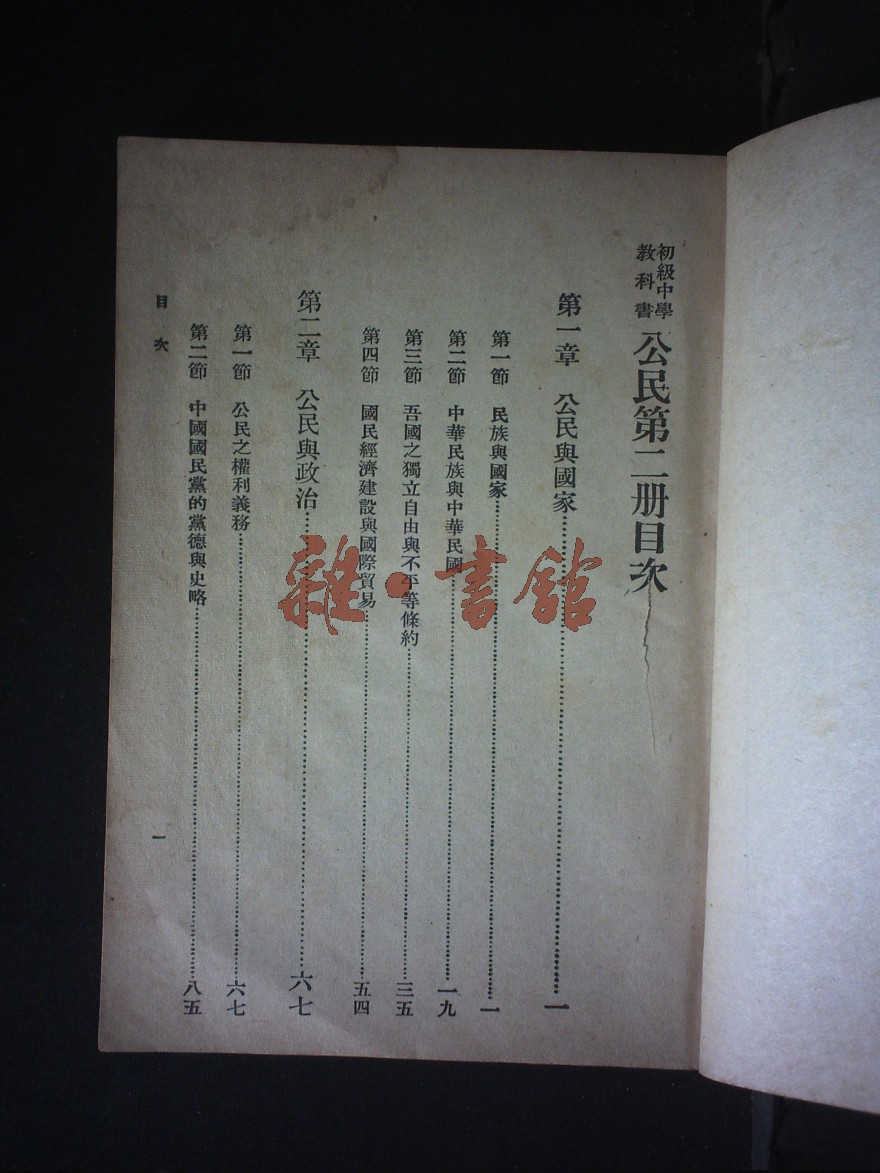 初級中學
教科書
公民第二册目次
第一章　公民與國家……一
第一節　民族與國家……一
第二節　中華民族與中華民國……一九
第三節　吾國之獨立自由與不平等條約……三五
第四節　國民經濟建設與國際貿易……五四
第二章　公民與政治……六七
第一節　公民之權利義務……六七
第二節　中國國民黨的黨德與史略……八五
目次
一
雜·書館